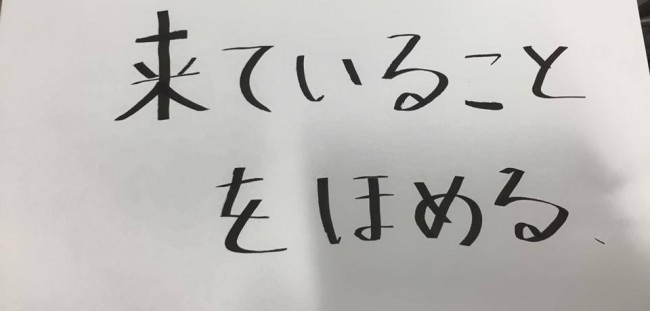 来ていること
をほめる、